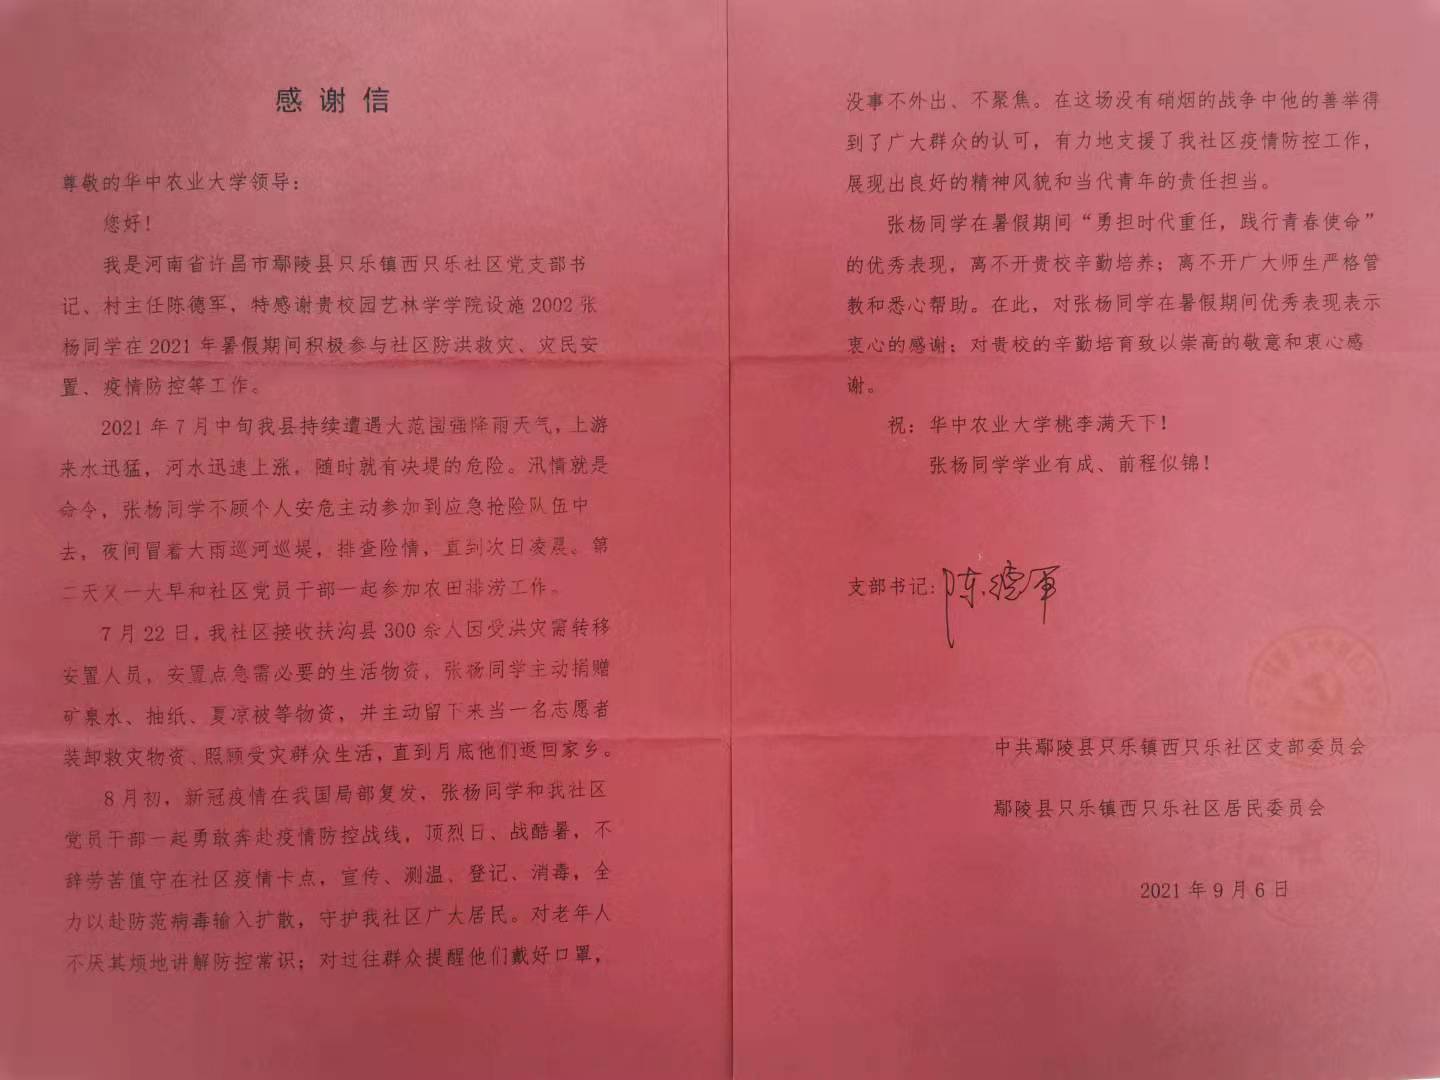 感谢信
尊敬的华中农业大学领导：
您好！
我是河南省许昌市鄢陵县只乐镇西只乐社区党支部书
记、村主任陈德军，特感谢贵校园艺林学学院设施2002张
杨同学在2021年暑假期间积极参与社区防洪救灾、灾民安
置、疫情防控等工作。
2021年7月中旬我县持续遭遇大范围强降雨天气，上游
来水迅猛，河水迅速上涨，随时就有决堤的危险。汛情就是
命令，张杨同学不顾个人安危主动参加到应急抢险队伍中
去，夜间冒着大雨巡河巡堤，排查险情，直到次日凌晨。第
二天又一大早和社区党员干部一起参加农田排涝工作。
7月22日，我社区接收扶沟县300余人因受洪灾需转移
安置人员，安置点急需必要的生活物资，张杨同学主动捐赠
矿泉水、抽纸、夏凉被等物资，并主动留下来当一名志愿者
装卸救灾物资、照顾受灾群众生活，直到月底他们返回家乡。
8月初，新冠疫情在我国局部复发，张杨同学和我社区
党员干部一起勇敢奔赴疫情防控战线，顶烈日、战酷暑，不
辞劳苦值守在社区疫情卡点，宣传、测温、登记、消毒，全
力以赴防范病毒输入扩散，守护我社区广大居民。对老年人
不厌其烦地讲解防控常识；对过往群众提醒他们戴好口罩，
没事不外出、不聚焦。在这场没有硝烟的战争中他的善举得
到了广大群众的认可，有力地支援了我社区疫情防控工作，
展现出良好的精神风貌和当代青年的责任担当。
张杨同学在暑假期间“勇担时代重任，践行青春使命”
的优秀表现，离不开贵校辛勤培养；离不开广大师生严格管
教和悉心帮助。在此，对张杨同学在暑假期间优秀表现表示
衷心的感谢；对贵校的辛勤培育致以崇高的敬意和衷心感
谢。
祝：华中农业大学桃李满天下！
张杨同学学业有成、前程似锦！
支部书记：陈德军
中共鄢陵县只乐镇西只乐社区支部委员会
鄢陵县只乐镇西只乐社区居民委员会
2021年9月6日